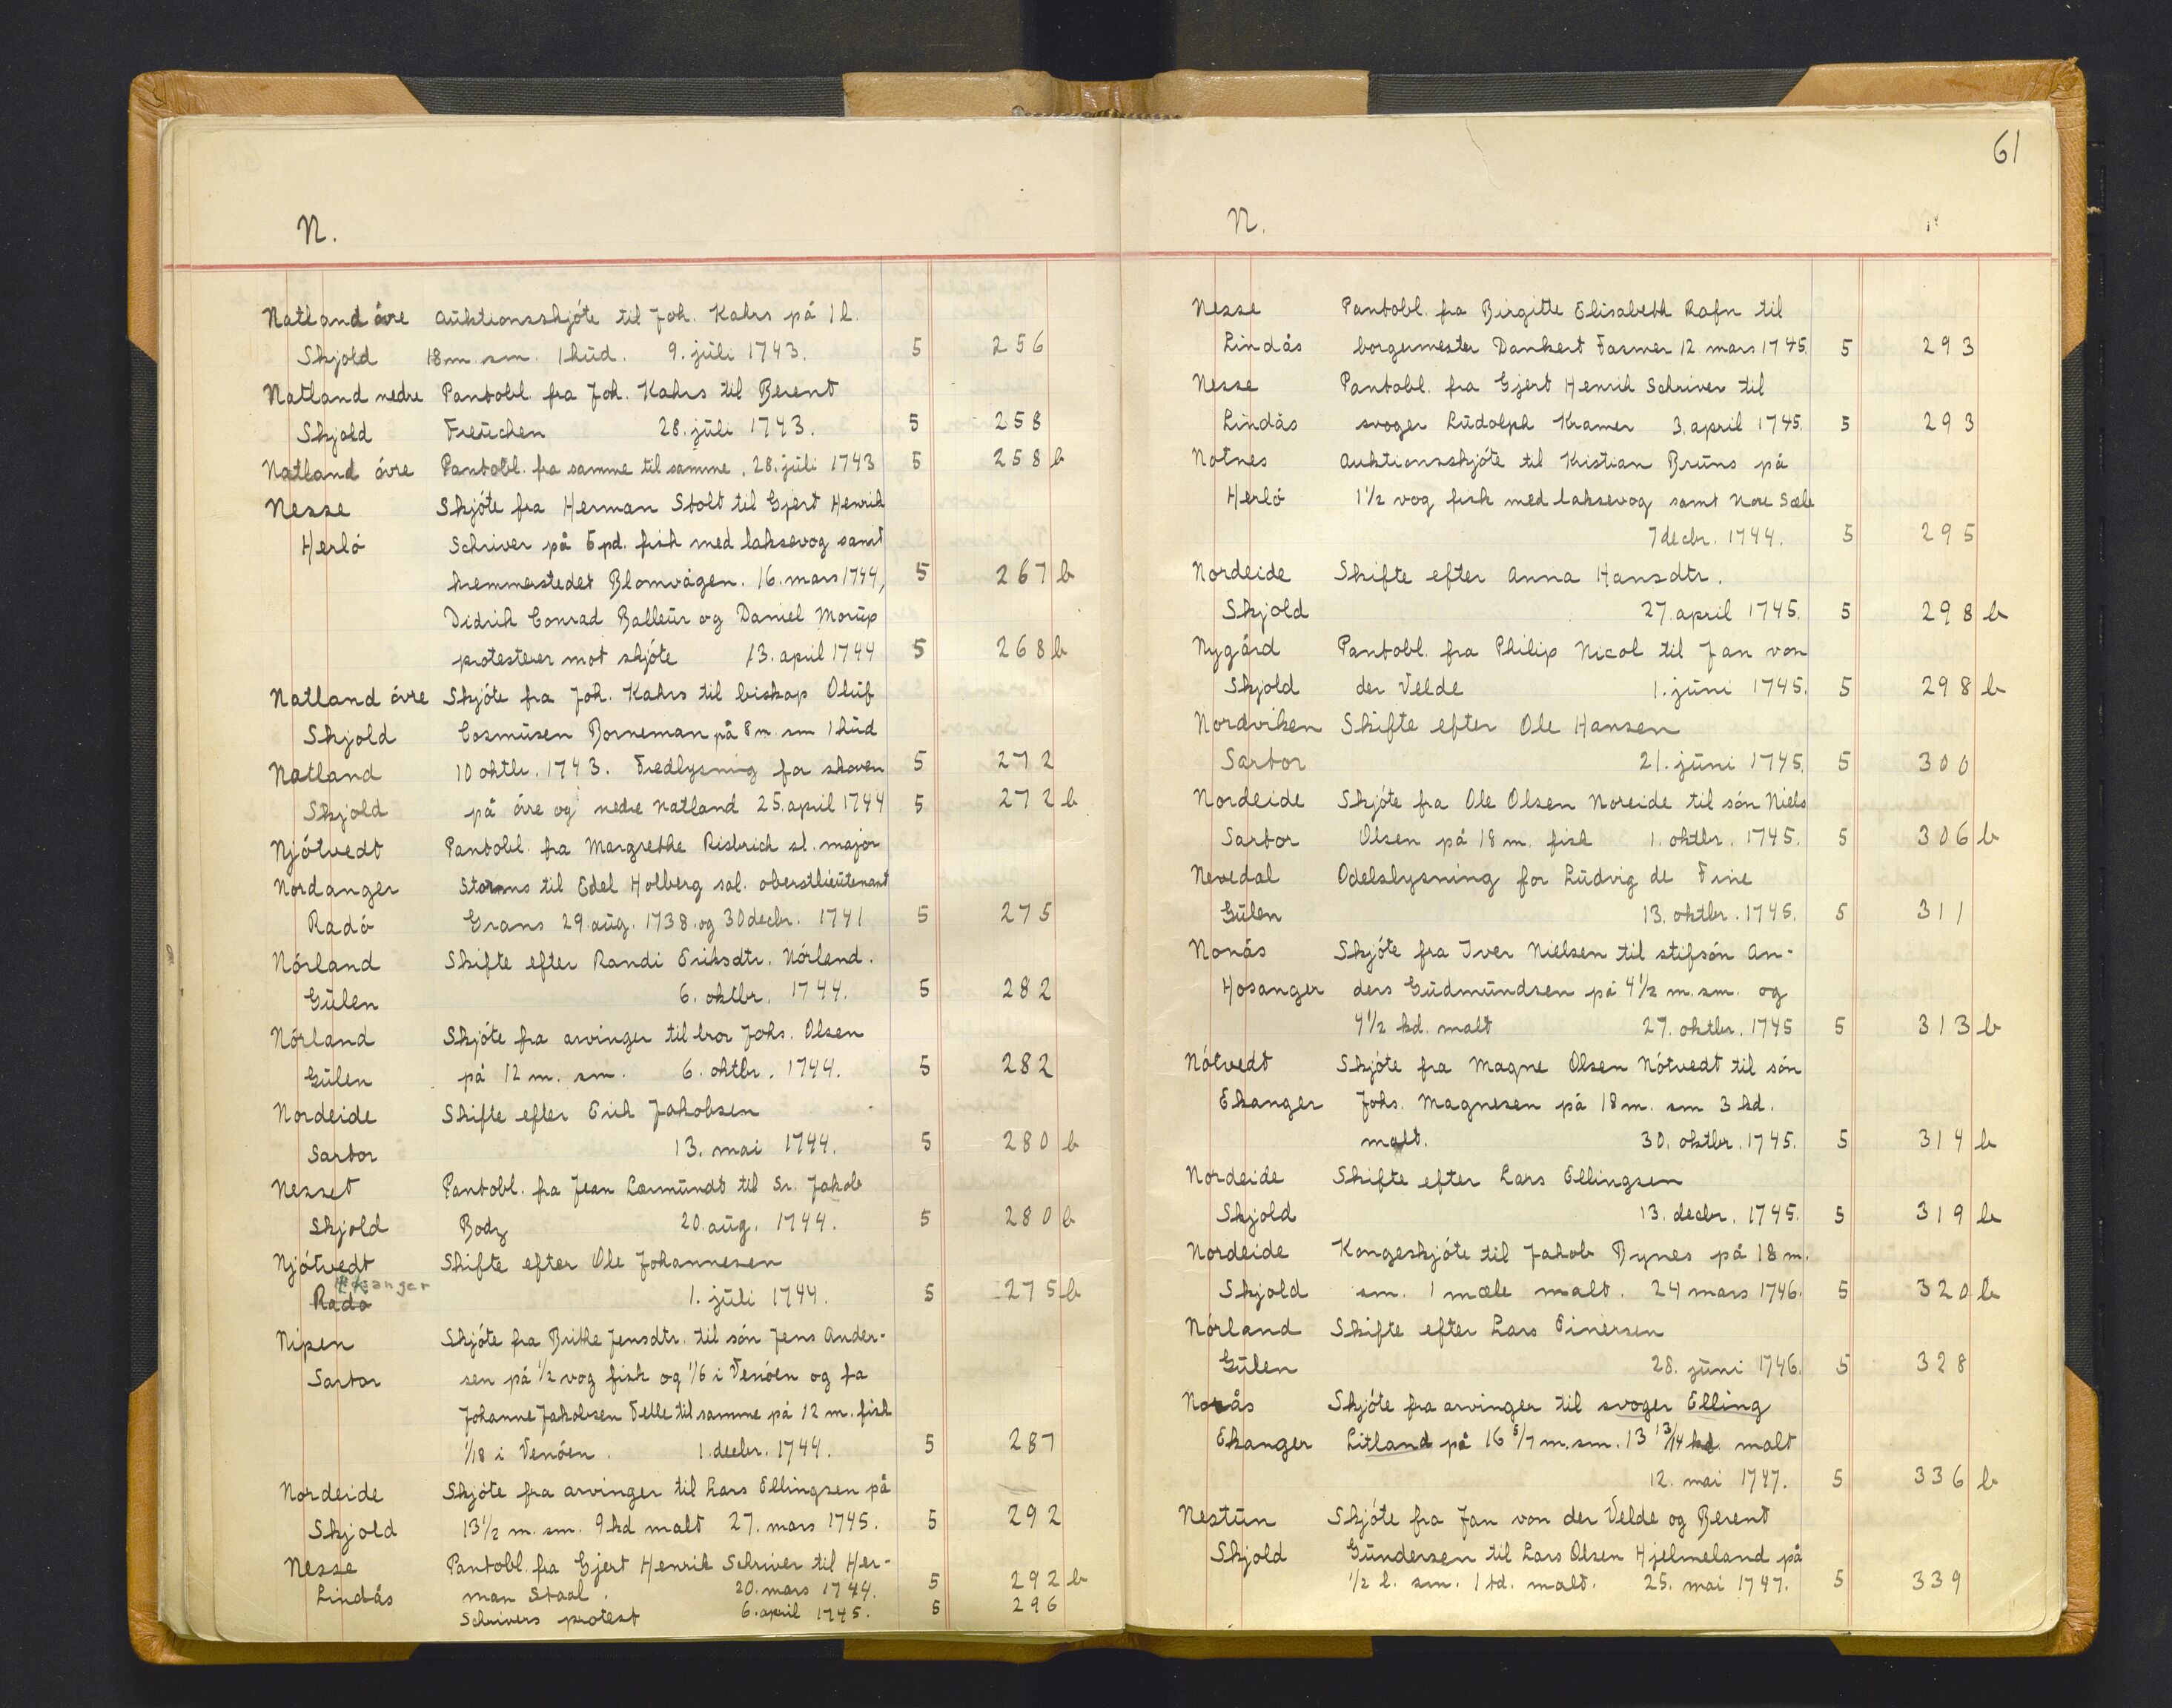 N.
Natland övre Auktionsskjóte til Joh. Kahrs på 1 l.
Skjold 18 m. sm. 1 hud. 9. juli 1743. 5 256
Natland nedre Pantobl. fra Joh. Kahrs til Berent
Skjold Freuchen 28. juli 1743. 5 258
Natland óvre Pantobl. fra samme til samme. 28. juli 1743 5 258 b
Nesse Skjóte fra Herman Stolt til Gjert Henrik
Herló Schriver på 6 pd. fisk med laksevog samt
kremmerstedet Blomvågen. 16. mars 1744, 5 267 b
Didrik Conrad Balleur og Daniel Morup
protesterer mot skjóte 13. april 1744 5 268 b
Natland óvre Skjóte fra Joh. Kahrs til biskop Oluf
Skjold Cosmusen Borneman på 8 m. sm 1 hud
Natland 10 oktbr. 1743. Fredlysning for skoven 5 272
Skjold på óvre og nedre Natland 25. april 1744 5 272 b
Njótvedt Pantobl. fra Margrethe Risbrich sl. major
Nordanger Storms til Edel Holberg sal. oberstlieutenant
Radó Grans 29. aug. 1738. og 30 decbr. 1741 5 275
Nórland Skifte efter Randi Eriksdtr. Nórland.
Gulen 6. oktbr. 1744. 5 282
Nórland Skjóte fra arvinger til bror Johs. Olsen
Gulen på 12 m. sm. 6. oktbr. 1744. 5 282
Nordeide Skifte efter Erik Jakobsen
Sartor 13. mai 1744. 5 280 b
Nesset Pantobl. fra Jean Lormundt til Sr. Jakob
Skjold Body 20. aug. 1744. 5 280 b
Njótvedt Skifte efter Ole Johannesen
Ekanger
Radó 1. juli 1744. 5 275 b
Nipen Skjóte fra Brithe Jensdtr. til són Jens Ander-
Sartor sen på 1/2 vog fisk og 1/6 i Venóen og fra
Johanne Jakobsen Telle til samme på 12 m. fisk
1/18 i Venóen. 1. decbr. 1744. 5 287
Nordeide Skjóte fra arvinger til Lars Ellingsen på
Skjold 13 1/2 m. sm. 9 kd malt 27. mars 1745. 5 292
Nesse Pantobl. fra Gjert Henrik Schriver til Her-
Lindås man Staal. 20. mars 1744. 5 292 b
Schrivers protest 6. april 1745. 5 296
61
N.
Nesse Pantobl. fra Birgitte Elisabeth Rafn til
Lindås borgermester Dankert Farmer 12. mars 1745. 5 293
Nesse Pantobl. fra Gjert Henrik Schriver til
Lindås svoger Ludolph Kramer 3. april 1745. 5 293
Notnes Auktionsskjóte til Kristian Bruns på
Herló 1 1/2 vog fisk med laksevog samt Nore Sæle
7 decbr. 1744. 5 295
Nordeide Skifte efter Anna Hansdtr.
Skjold 27. april 1745. 5 298 b
Nygård Pantobl. fra Philip Nicol til Jan von
Skjold der Velde 1. juni 1745. 5 298 b
Nordviken Skifte efter Ole Hansen
Sartor 21. juni 1745. 5 300
Nordeide Skjóte fra Ole Olsen Noreide til són Niels
Sartor Olsen på 18 m. fisk 1. oktbr. 1745. 5 306 b
Nevedal Odelslysning for Ludvig de Fine
Gulen 13. oktbr. 1745. 5 311
Nonås Skjóte fra Iver Nielsen til stifsón An-
Hosanger ders Gudmundsen på 4 1/2 m. sm. og
4 1/2 kd. malt 27. oktbr. 1745 5 313 b
Nótvedt Skjóte fra Magne Olsen Nótvedt til són
Ekanger Johs. Magnesen på 18 m. sm 3 kd.
malt. 30. oktbr. 1745. 5 314 b
Nordeide Skifte efter Lars Ellingsen
Skjold 13. decbr. 1745. 5 319 b
Nordeide Kongeskjóte til Jakob Bynes på 18 m.
Skjold sm. 1 mæle malt. 24 mars 1746. 5 320 b
Nórland Skifte efter Lars Einersen
Gulen 28. juni 1746. 5 328
Norås Skjóte fra arvinger til svoger Elling
Ekanger Litland på 16 5/7 m. sm. 13 13/14 kd. malt
12. mai 1747. 5 336 b
Nestun Skjóte fra Jan von der Velde og Berent
Skjold Gundersen til Lars Olsen Hjelmeland på
1/2 l. sm. 1 td. malt. 25. mai 1747. 5 339